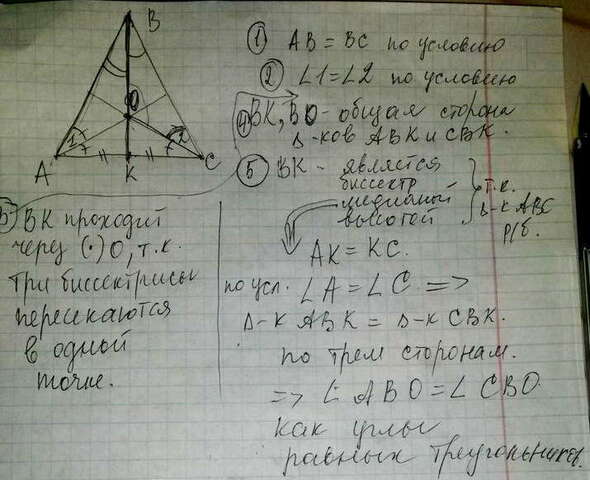 B
O
1
2
A
K
C
① AB = BC по условию
② ∠1 = ∠2 по условию
④ BK, BO - общая сторона
Δ-ков ABK и CBK.
⑤ BK - является
биссектр
медианой
высотой
т.к.
Δ-к ABC
р/б.
AK = KC.
по усл. ∠A = ∠C =>
Δ-к ABK = Δ-к CBK.
по трем сторонам.
=> ∠ABO = ∠CBO
как углы
равных треугольников.
3) BK проходит
через (·) O, т.к.
три биссектрисы
пересекаются
в одной
точке.